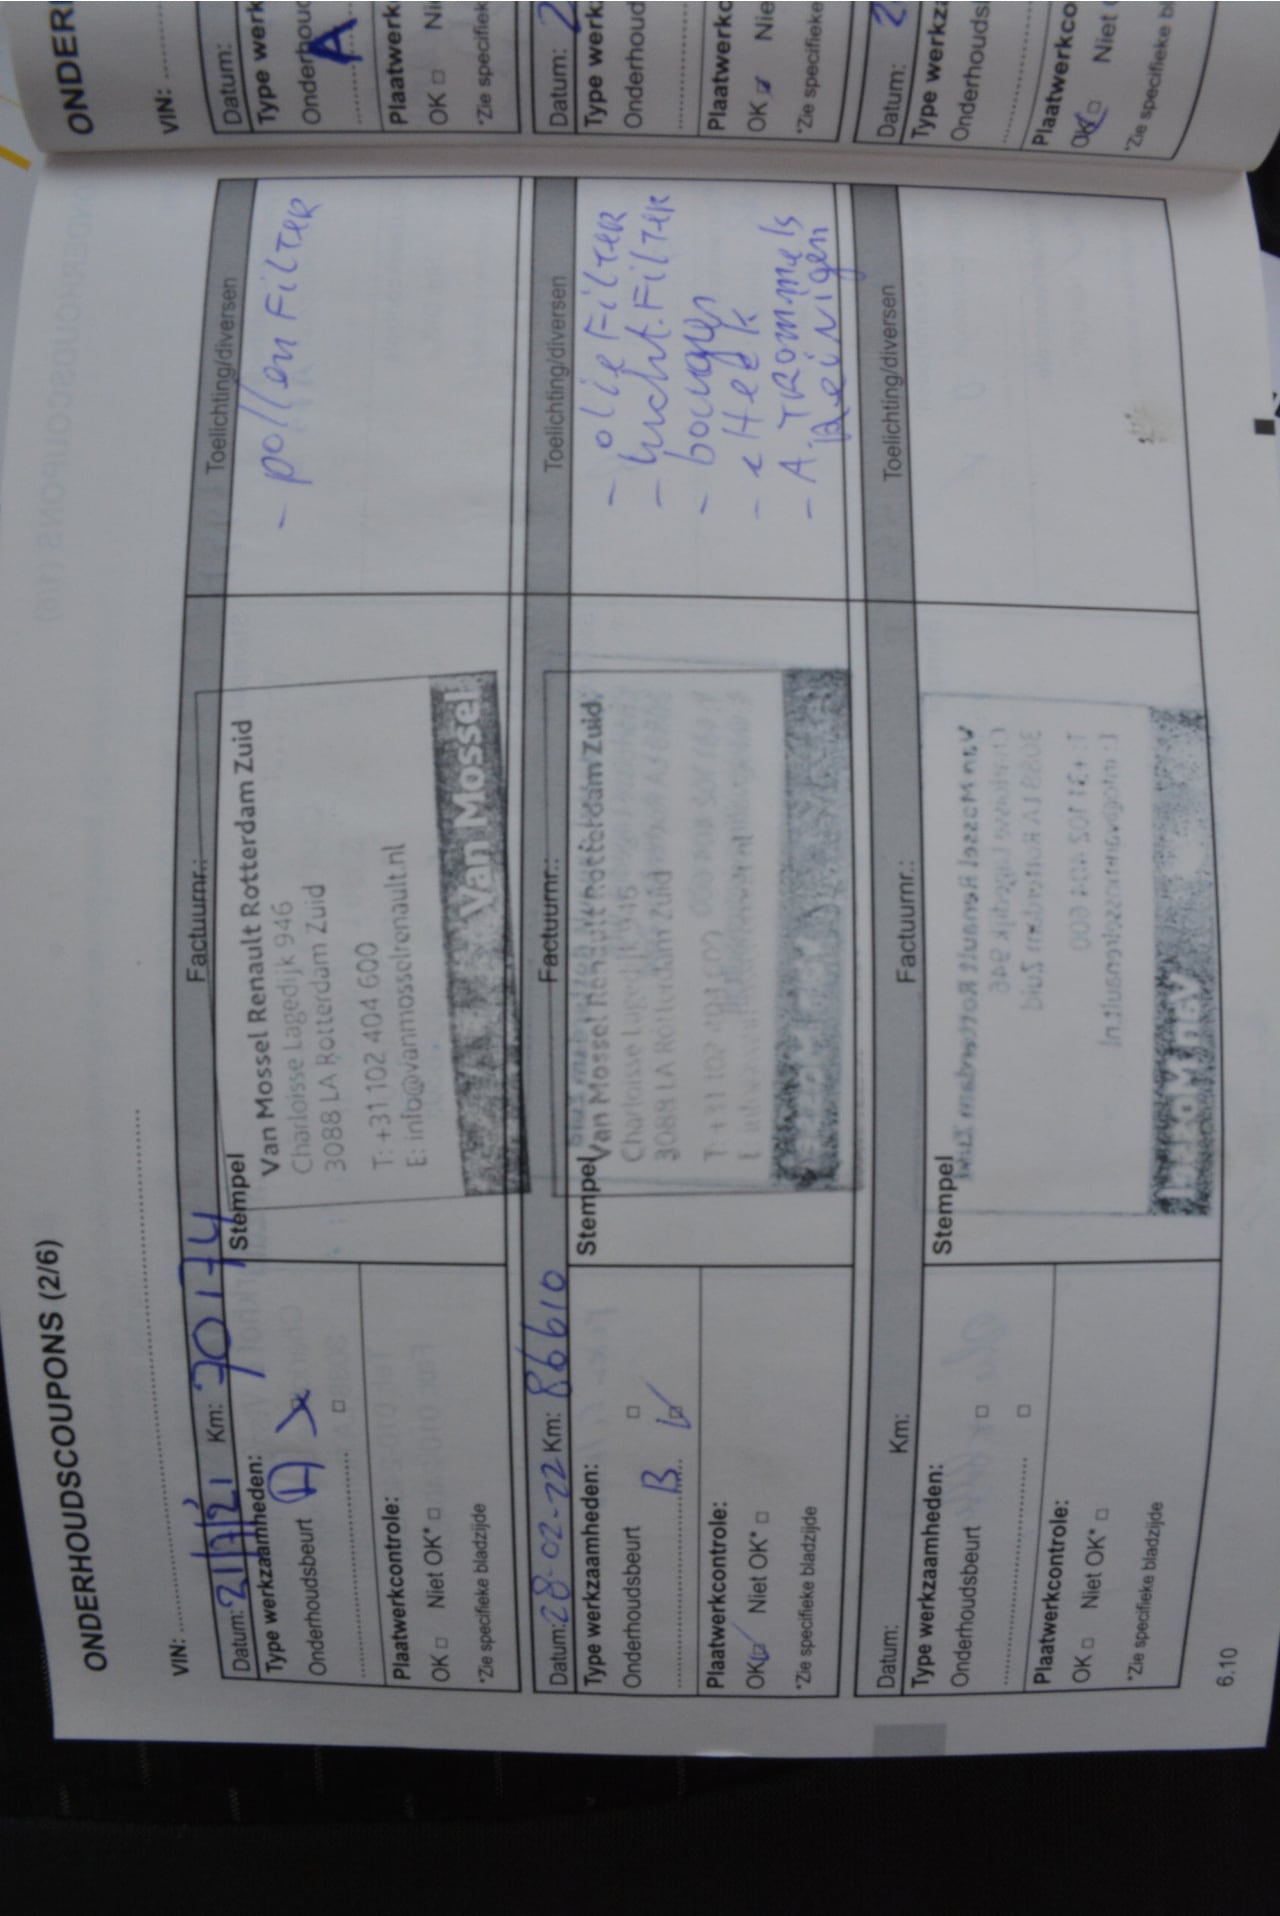 ONDERHOUDSCOUPONS (2/6)
VIN:
Datum: 21/7/21 Km: 70174 Factuurnr.: Toelichting/diversen
Type werkzaamheden:
Onderhoudsbeurt A
Plaatwerkcontrole:
OK □ Niet OK* □
*Zie specifieke bladzijde
Stempel
Van Mossel Renault Rotterdam Zuid
Charloisse Lagedijk 946
3088 LA Rotterdam Zuid
T: +31 102 404 600
E: info@vanmosselrenault.nl
Van Mossel
- pollen FilTeR
Datum: 28-02-22 Km: 86610 Factuurnr.: Toelichting/diversen
Type werkzaamheden:
Onderhoudsbeurt □
B
Plaatwerkcontrole:
OK Niet OK* □
*Zie specifieke bladzijde
Stempel
Van Mossel Renault Rotterdam Zuid
Charloisse Lagedijk 946
3088 LA Rotterdam Zuid
T: +31 102 404 600
- olieFilTeR
- lucht.FilTeR
- bougies
- A. TRommels
Reinigen
Datum: Km: Factuurnr.: Toelichting/diversen
Type werkzaamheden:
Onderhoudsbeurt □
□
Plaatwerkcontrole:
OK □ Niet OK* □
*Zie specifieke bladzijde
Stempel
Van Mossel Renault Rotterdam Zuid
Charloisse Lagedijk 946
3088 LA Rotterdam Zuid
T: +31 102 404 600
Van Mossel
6.10
VIN:
Datum:
A
OK □
*Zie specifieke
Datum: 2
Onderhoud
OK
*Zie specifieke
Datum: 2
OK □ Niet
*Zie specifieke